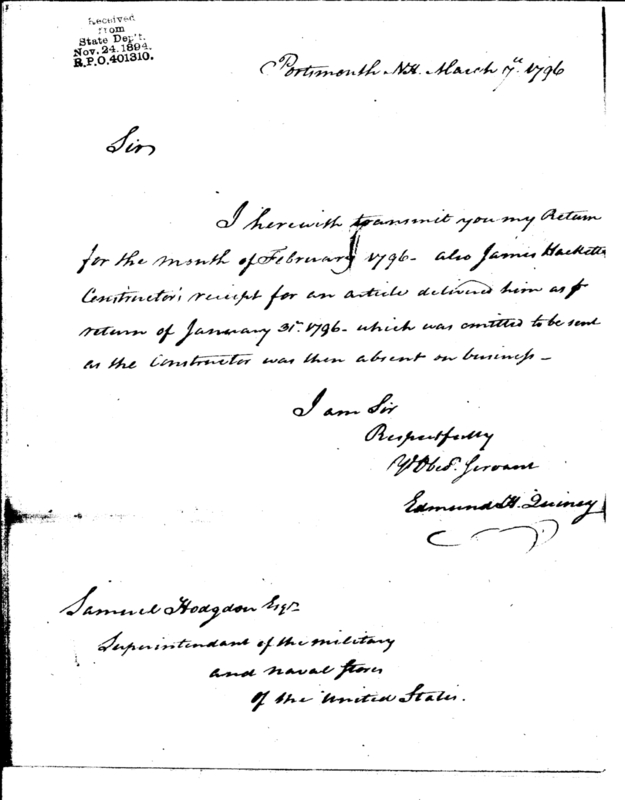 Received
from
State Dep't.
Nov. 24. 1894.
R.P.O. 401310.
Portsmouth NH. March 7th. 1796
Sir
I herewith transmit you my Return
for the month of February 1796 - also James Hacketts
Constructor's receipt for an article delivered him as pr
return of January 31st. 1796 - which was omitted to be sent
as the Constructor was then absent on business -
I am Sir
Respectfully
Yr Obed. Servant
Edmund H. Quincy
Samuel Hodgdon Esqr
Superintendant of the military
and naval stores
of the United States.